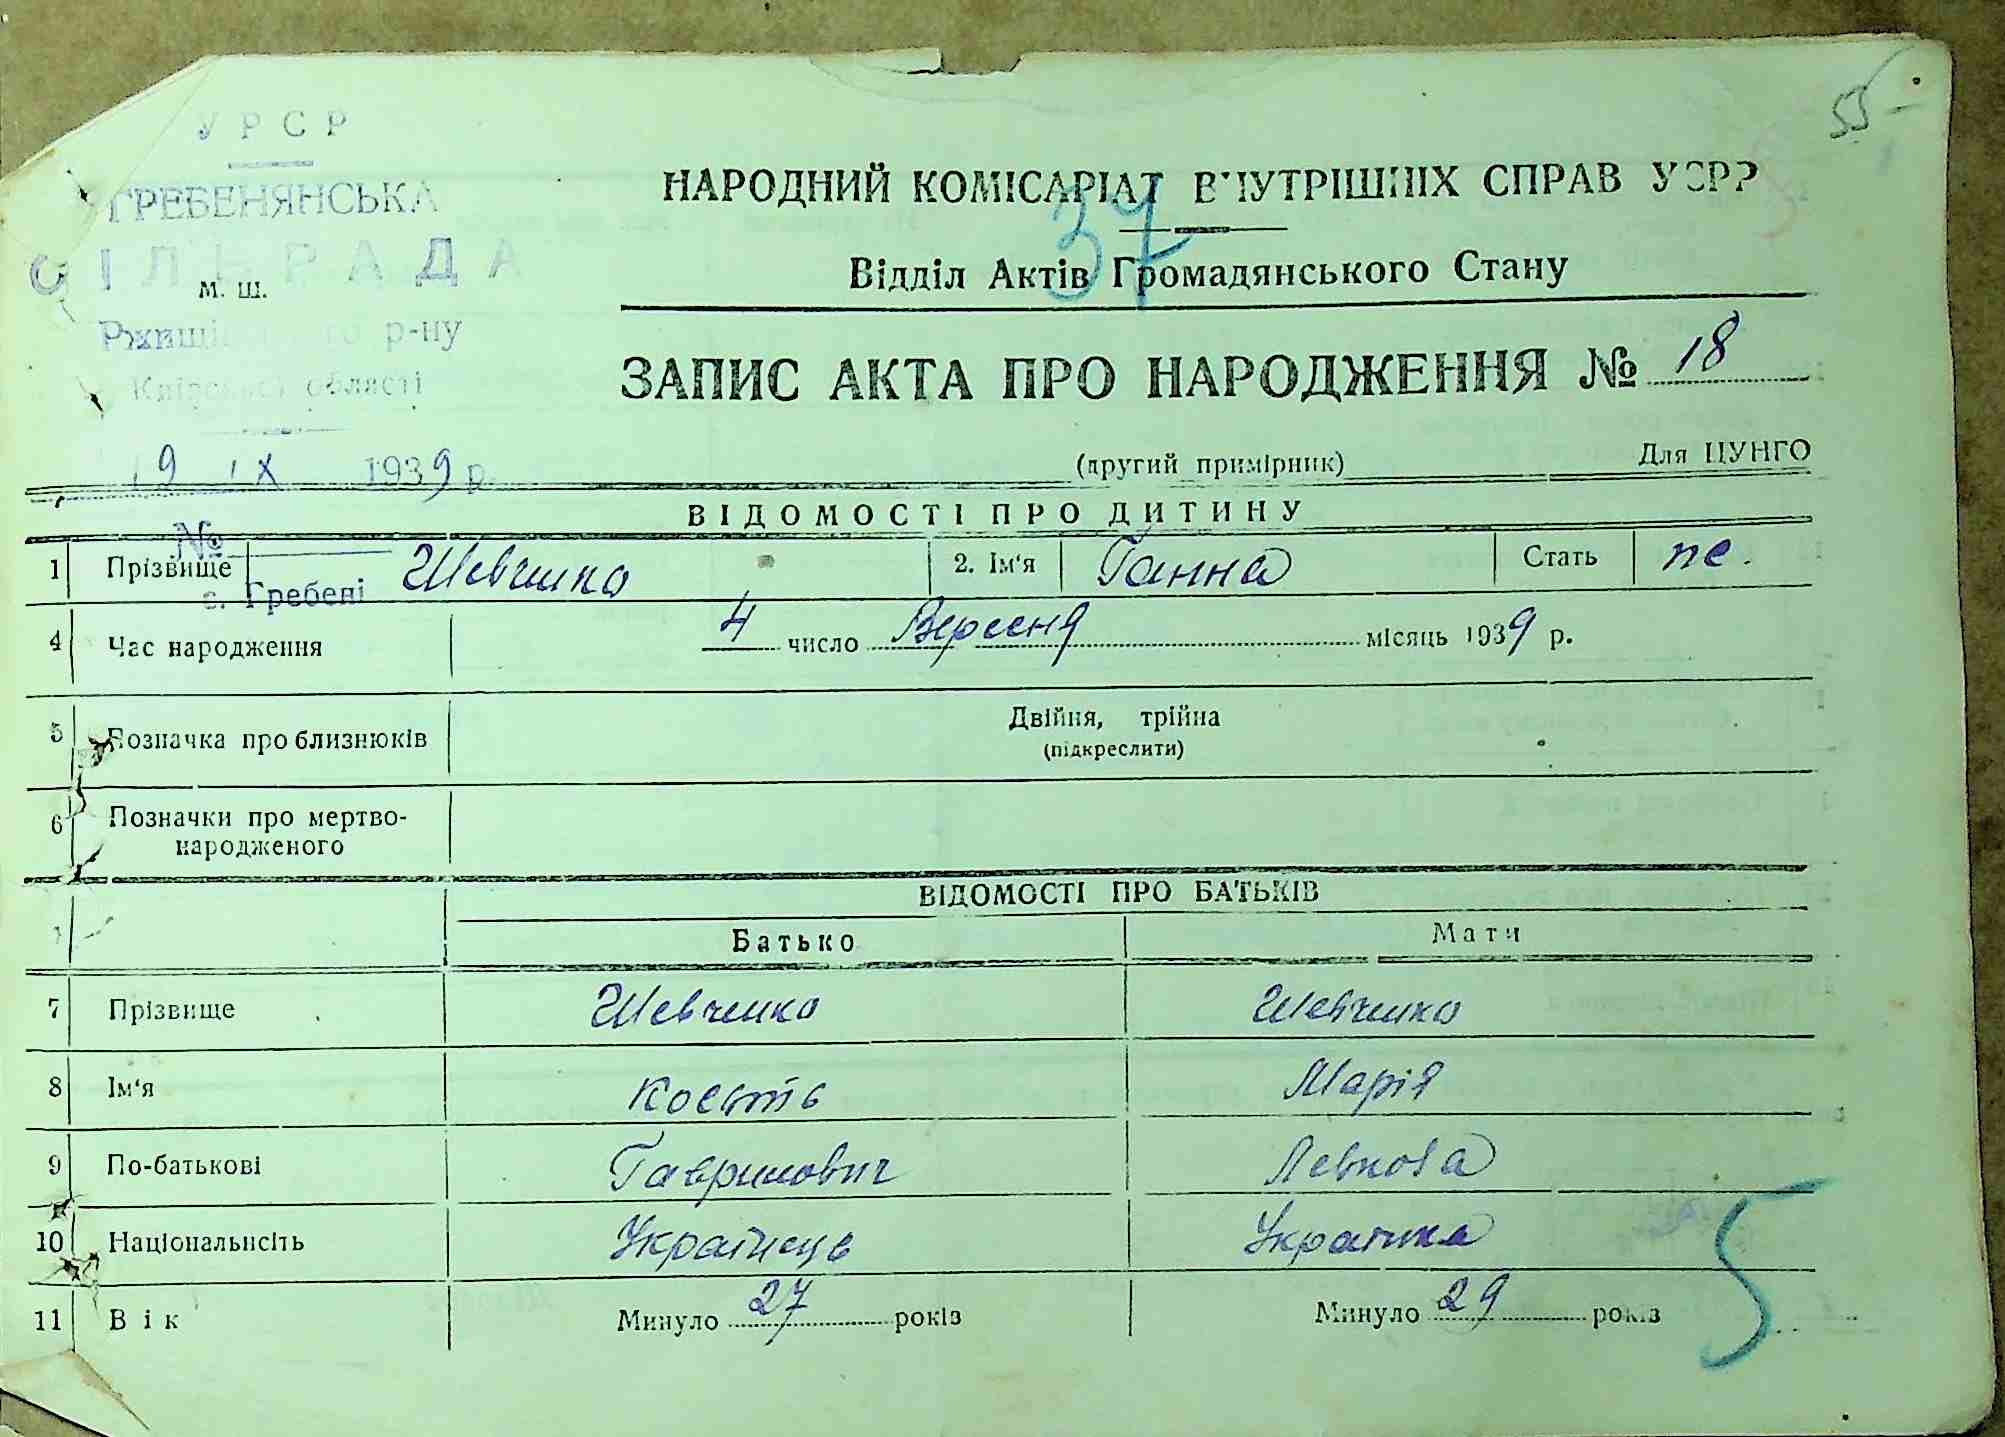 55
УРСР
ГРЕБЕНЯНСЬКА
СІЛЬРАДА
м. ш.
р-ну
Київської області
19 ІХ 1939 р.
№
с. Гребені
НАРОДНИЙ КОМІСАРІАТ ВНУТРІШНІХ СПРАВ УСРР
37
Відділ Актів Громадянського Стану
ЗАПИС АКТА ПРО НАРОДЖЕННЯ № 18
(другий примірник) Для ЦУНГО
ВІДОМОСТІ ПРО ДИТИНУ
1 Прізвище Шевченко 2. Ім'я Ганна Стать
4 Час народження 4 число Вересня місяць 1939 р.
5 Позначка про близнюків Двійня, трійна
(підкреслити)
6 Позначки про мертво-
народженого
ВІДОМОСТІ ПРО БАТЬКІВ
Батько Мати
7 Прізвище Шевченко Шевченко
8 Ім'я Кость Марія
9 По-батькові Гаврилович Левкова
10 Національність Українець Українка
11 Вік Минуло 27 років Минуло 29 років
5